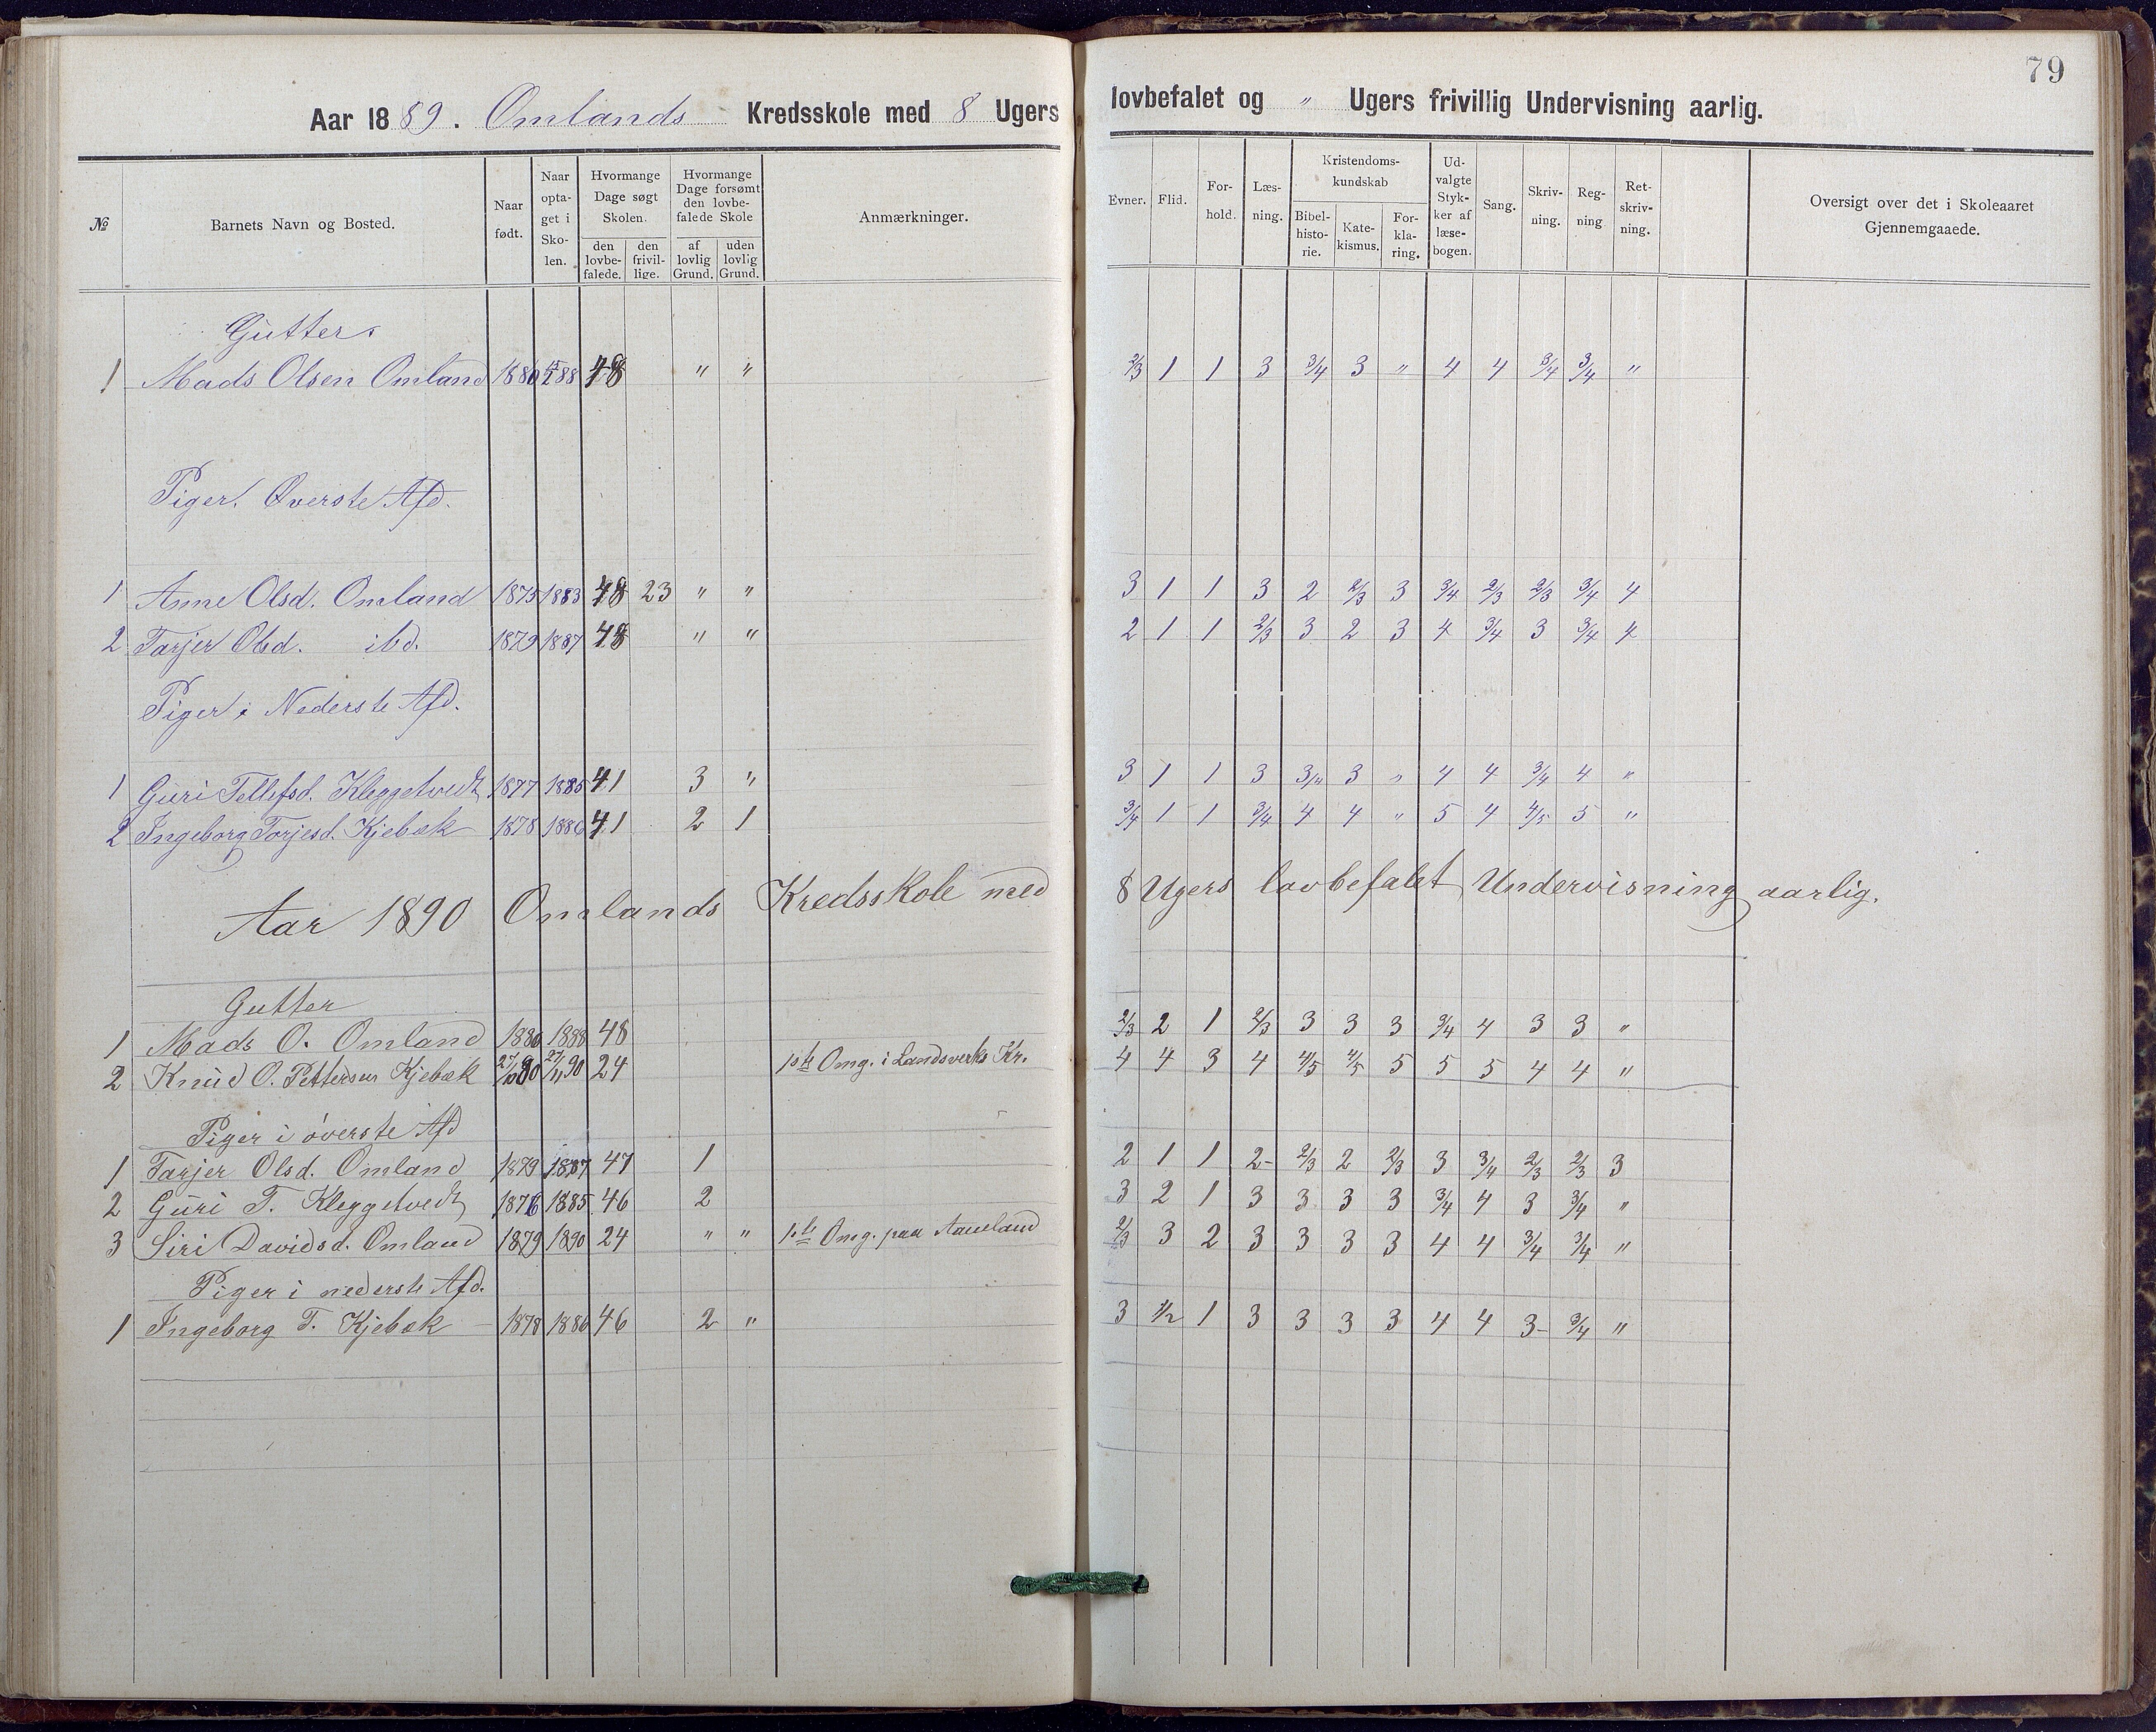 79
Aar 1889. Omlands Kredsskole med 8 Ugers lovbefalet og " Ugers frivillig Undervisning aarlig.
№ Barnets Navn og Bosted. Naar født. Naar opta- get i Sko- len. Hvormange Dage søgt Skolen. den lovbe- falede. den frivil- lige. Hvormange Dage forsømt den lovbe- falede Skole af lovlig Grund. uden lovlig Grund. Anmærkninger. Evner. Flid. For- hold. Læs- ning. Kristendoms- kundskab Bibel- histo- rie. Kate- kismus. For- kla- ring. Ud- valgte Styk- ker af læse- bogen. Sang. Skriv- ning. Reg- ning Ret- skriv- ning. Oversigt over det i Skoleaaret Gjennemgaaede.
Gutter
1 Mads Olsen Omland 1880 88 48 " " 2/3 1 1 3 3/4 3 " 4 4 3/4 3/4 "
Piger. Øverste Afd.
1 Anne Olsd. Omland 1875 1883 48 23 " " 3 1 1 3 2 2/3 3 3/4 2/3 2/3 3/4 4
2 Tarjer Olsd. ibd. 1879 1887 48 " " 2 1 1 2/3 3 2 3 4 3/4 3 3/4 4
Piger i Nederste Afd.
1 Guri Tellefsd. Kleggetvedt 1877 1885 41 3 " 3 1 1 3 3/4 3 " 4 4 3/4 4 "
2 Ingeborg Torjesd. Kjebæk 1878 1886 41 2 1 3/4 1 1 3/4 4 4 " 5 4 4/5 5 "
Aar 1890 Omlands Kredsskole med 8 Ugers lovbefalet Undervisning aarlig.
Gutter
1 Mads O. Omland 1880 1888 48 2/3 2 1 2/3 3 3 3 3/4 4 3 3 "
2 Knud O. Pettersen Kjebæk 27/10 80 27/11 90 24 1ste Omg. i Landsverks Kr. 4 4 3 4 4/5 4/5 5 5 5 4 4 "
Piger i øverste Afd
1 Tarjer Olsd. Omland 1879 1887 47 1 2 1 1 2- 2/3 2 2/3 3 3/4 2/3 2/3 3
2 Guri T. Kleggetvedt 1876 1885 46 2 3 2 1 3 3 3 3 3/4 4 3 3/4 "
3 Siri Davidsd. Omland 1879 1890 24 " " 1ste Omg. paa Aamland 2/3 3 2 3 3 3 3 4 4 3/4 3/4 "
Piger i nederste Afd.
1 Ingeborg T. Kjebæk 1878 1886 46 2 " 3 1/2 1 3 3 3 3 4 4 3- 3/4 "